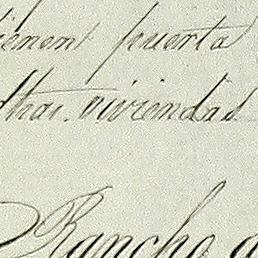 tienent puerta
dhas. viviendas
Rancho a